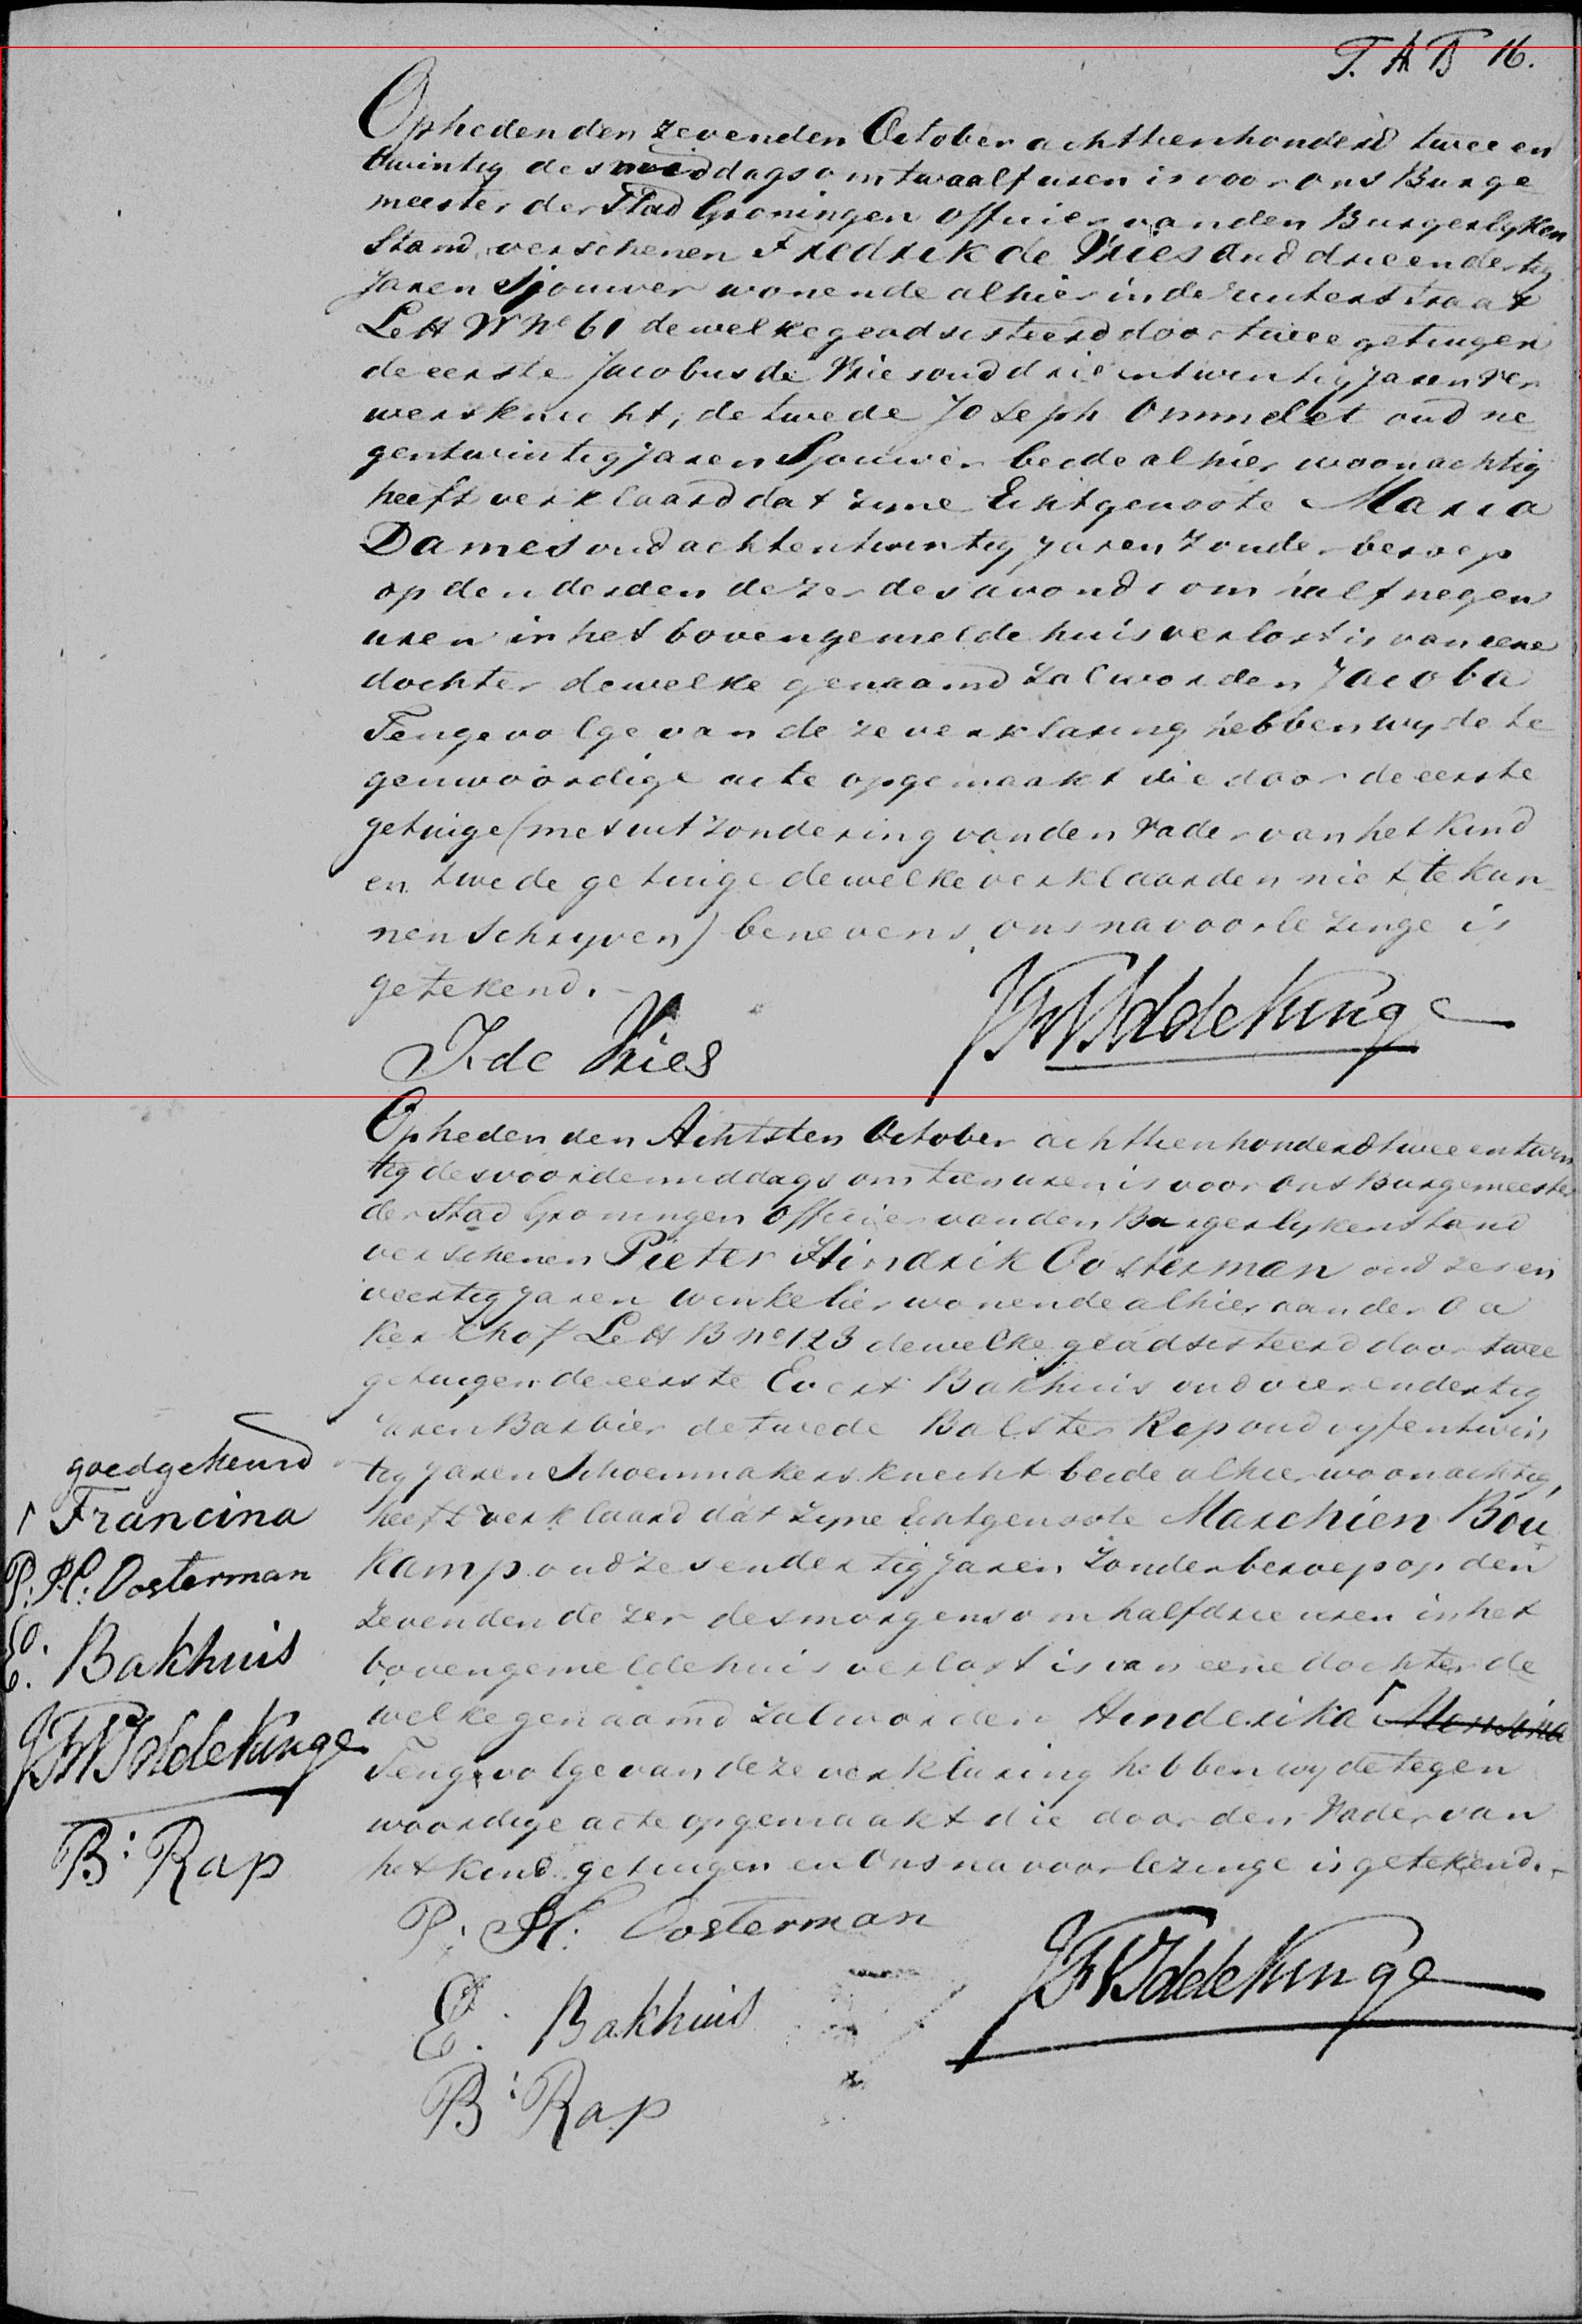 T. A B 16.
Opheden den zevenden October achttienhonderd twee en
twintig des middags om twaalf uren is voor ons Burge
meester der Stad Groningen officier van den Burgerlyken
Stand verschenen Fredrik de Vries oud drie en dertig
Jaren Sjouwer wonende alhier in de
Lett W No 61 dewelke geadsisteerd door twee getuigen
de eerste Jacobus de Vries oud drie en twintig jaren ver
wersknecht, de twede Joseph Ommelet oud ne
gentwintig jaren Sjouwer beide alhier woonachtig
heeft verklaard dat zyne Echtgenoote Maria
Dames oud achtentwintig jaren zonder beroep
op den derden dezer des avonds om half negen
uren in het bovengemelde huis verlost is van eene
dochter dewelke genaamd zal worden Jacoba
Tengevolge van deze verklaring hebben wy de te
genwoordige acte opgemaakt die door de eerste
getuige (met uitzondering van den Vader van het Kind
en twede getuige dewelke verklaarden niet te kun
nen schryven) benevens ons na voorlezinge is
getekend. –
J. de Vries
JFVIddekinge
Opheden den Achtsten October achttienhonderd twee en twin
tig des voordemiddags om tien uren is voor ons Burgemeester
der Stad Groningen officier van den Burgerlyken Stand
verschenen Pieter Hindrik Oosterman oud zes en
veertig jaren winkelier wonende alhier aan der Aa
Kerkhof Lett B No 123 dewelke geadsisteerd door twee
getuigen de eerste Evert Bakhuis oud vier en dertig
jaren Barbier de twede Balster Rap oud vyfentwin
tig jaren Schoenmakersknecht beide alhier woonachtig,
heeft verklaard dat zyne Echtgenoote Marchien Bou
kamp oud zesendertig jaren zonder beroep op den
zevenden dezer des morgens om half drie uren in het
bovengemelde huis verlost is van eene dochter de
welke genaamd zal worden Hinderika ⌈
Tengevolge van deze verklaring hebben wy de tegen
woordige acte opgemaakt die door den Vader van
het kind getuigen en ons na voorlezinge is getekend. –
P. H. Oosterman
E. Bakhuis
B: Rap
JFVIddekinge
goedgekeurd
⌈ Francina
P. H: Oosterman
E. Bakhuis
JFVIddekinge
B: Rap